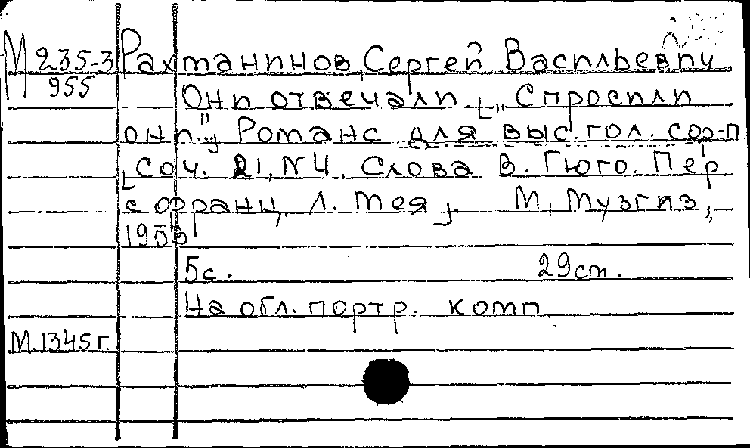 М 235-3 Рахманинов, Сергей Васильевич
955 Они отвечали. [„Спросили
они..."] Романс для выс. гол. с ф-п
[Соч. 21, № 4. Слова В. Гюго. Пер.
с франц. Л. Мея]. М., Музгиз,
1953
5 с. 29 см.
На обл. портр. комп.
М.1345 г.